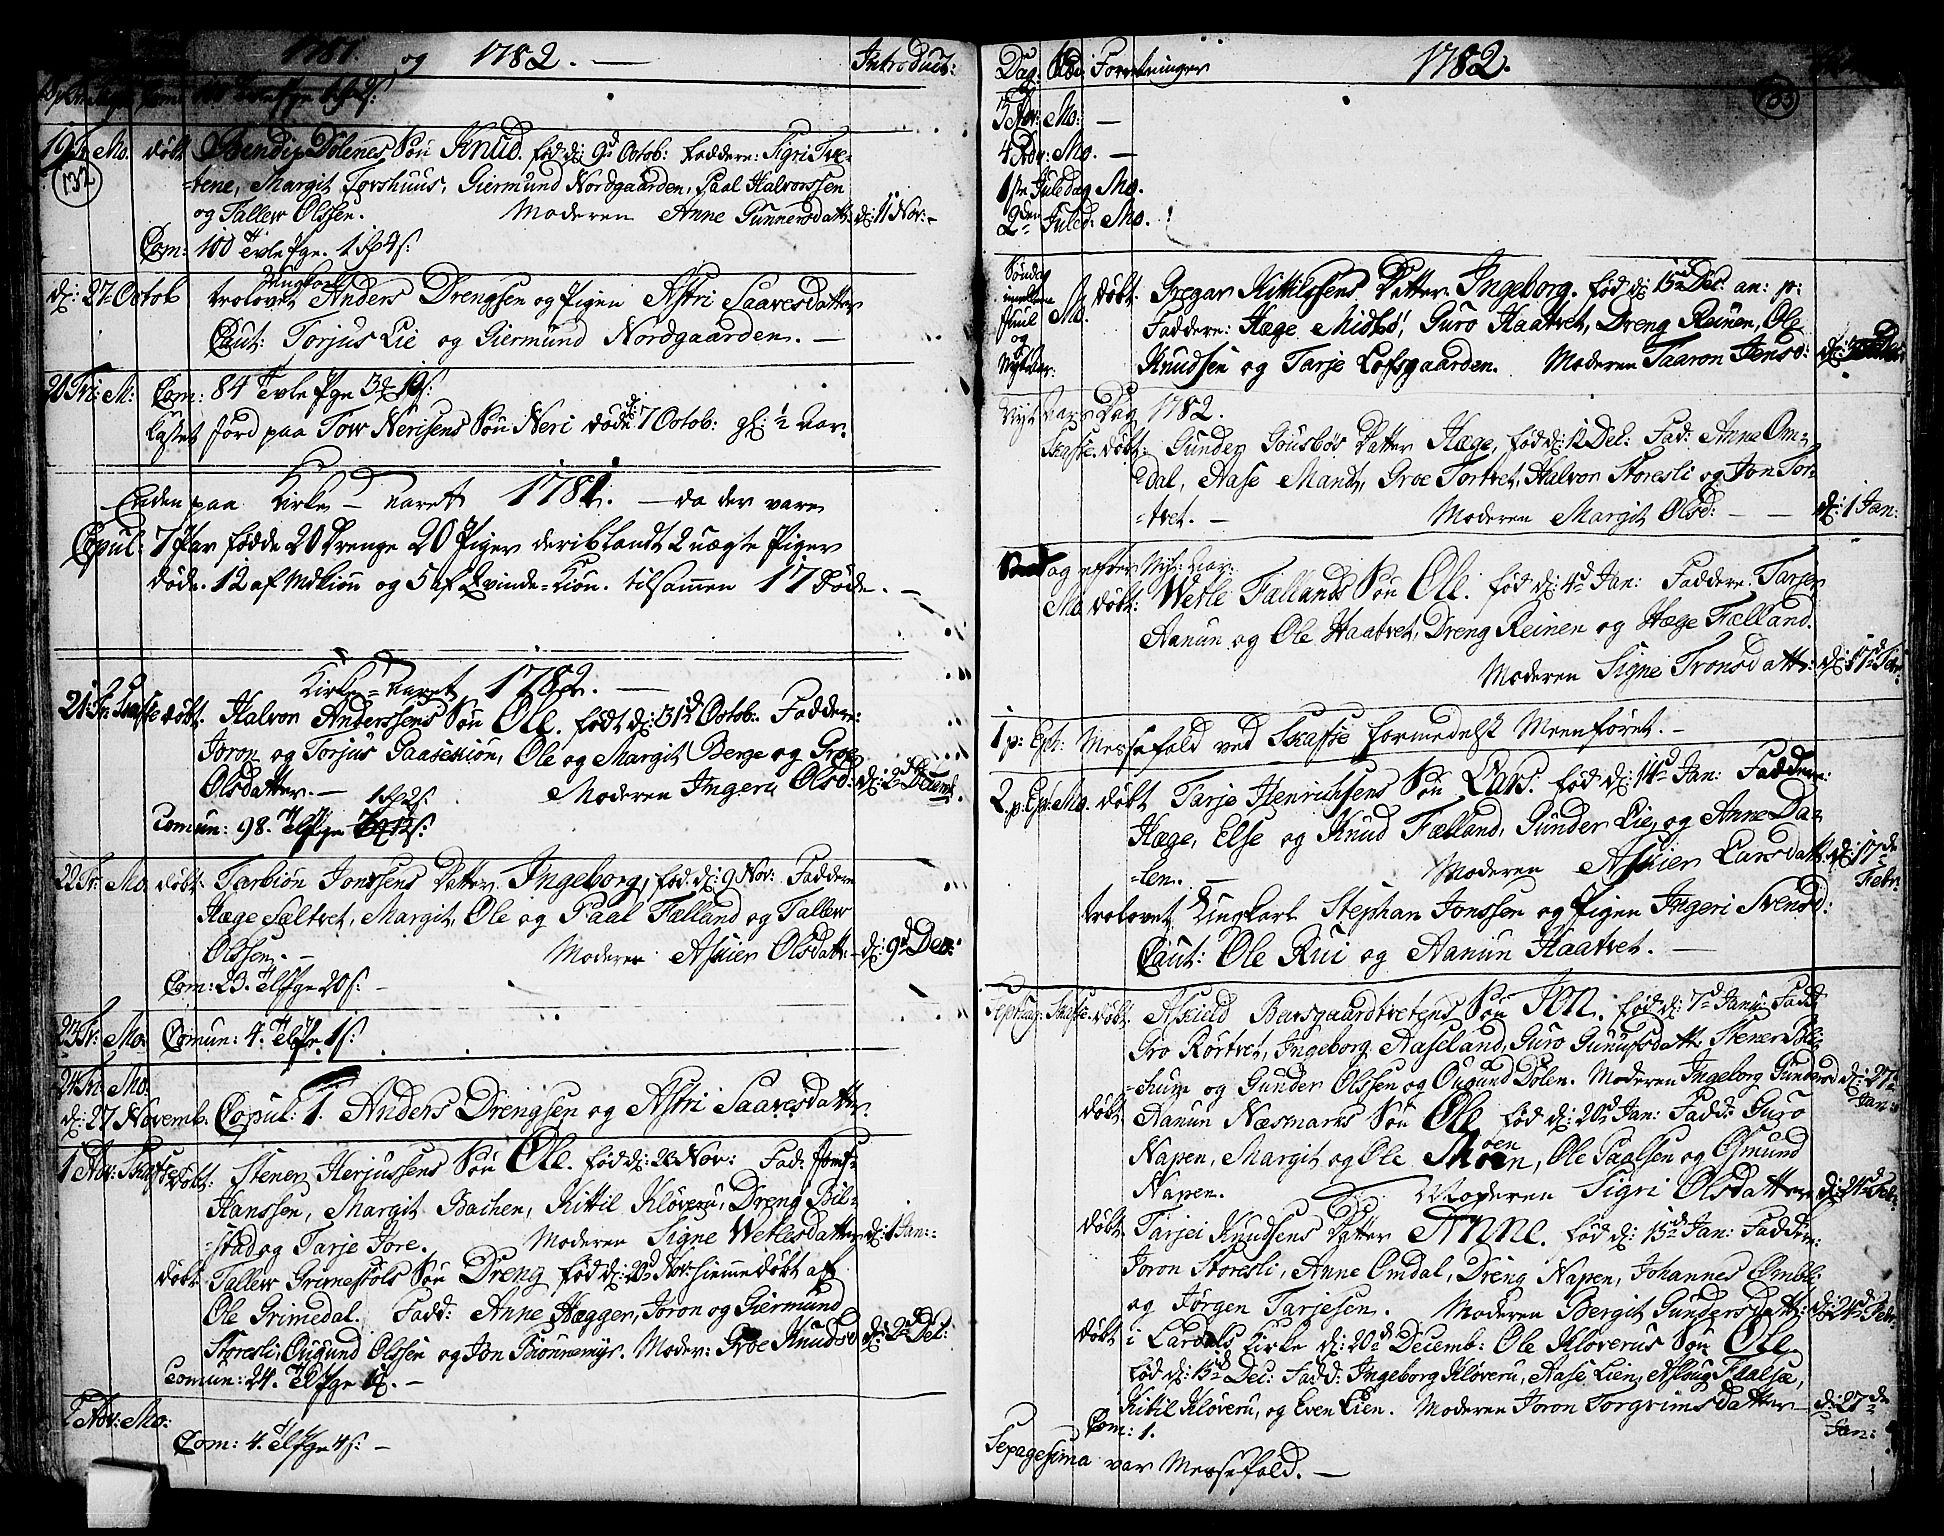 1781. og 1782. — Introduct:
19 Tr: Mo. døbt Bendix Dølenes Søn Knud. fød d: 9d Octob: Faddere: Sigri Tve-
132
-tene, Margit Torshuus, Giermund Nordgaarden, Paal Halvorssen
og Tallew Olssen. Moderen Anne Gunnersdatt: d: 11 Nov: -
Com: 100
d: 27 Octob trolovet Ungkarl Anders Drengsen og Pigen Astri Saavesdatter
Caut: Torjus Lie og Giermund Nordgaarden. —
20 Tri: M: Com: 84
kastet Jord paa Tow Nerisens Søn Neri døde d: 7 Octob: gl: ½ Aar.
Enden paa Kirke-aaret 1781. — da der vare
Copul: 7 Par fødde 20 Drenge 20 Piger deriblandt 2 uægte Piger
døde. 12 af Mdkiøn og 5 af Qvinde-Kiøn. tilsamen 17 Døde. —
Kirke-aaret 1782. —
21 Tr: Skafse døbt. Halvor Anderssens Søn Ole. født d: 31d Octob: Faddere:
Joron og Torjus Gaasekiøn, Ole og Margit Berge og Groe
Olsdatter. — Moderen Ingeri Olsd: d: 2d Decemb.
Comun: 98.
22 Tr: Mo. døbt. Tarbiøn Jonssens Datter Ingeborg, fød. d: 9 Nov: Faddere
Hæge Sæltvet, Margit, Ole og Paal Fælland og Tallew
Olssen. — Moderen Askier Olsdatt: — d: 9d Dec:
Com: 23.
23 Tr: Mo: Comun: 4.
24 Tri: Mo:
d: 27 Novemb. Copul: 1. Anders Drengsen og Astri Saavesdatter.
1 Adv: Skafse døbt: Stener Herjussens Søn Ole. fød d: 23 Nov: Fad:
Hanssen, Margit Bachen, Kittil Kløveru, Dreng Bil-
-stad og Tarje Jore. Moderen Signe Wetlesdatter d: 1 Jan: -
døbt Tallew Grimessøls Søn Dreng fød d: 20d Nov: hiemmedøbt af
Ole Grimedal. Fadd: Anne Hægger, Joron og Giermund
Storesli, Ougund Olssen og Jon Brønnemyr. Moder: Groe Knudsd d: 2d Dec:
Comun: 24.
2 Adv: Mo:
Com: 4.
Dag. Forretninger 1782.
133
3 Adv: Mo: —
4 Adv: Mo. —
1ste Juledag Mo.
2den Juled: Mo.
Søndag
imellem
Juul
og
Nytaar: Mo. døbt. Gregar Kittilssens Datter Ingeborg. fød d: 15d Dec: an: p:
Faddere: Hæge Midbø, Guro Haatvet, Dreng Reinen, Ole
Knudsen og Tarje Lofsgaarden. Moderen Taaron Jensd:
Nyt Aars Dag 1782.
Skafse. døbt: Gunder Gousbøs Datter Hæge, fød d: 12 Dec: Fad: Anne Om-
dal, Aase Mandt, Groe Tortvet, Halvor Storesli og Jon Tor-
-tvet. — Moderen Margit Olsd: — — d: 1 Jan:
Søndag efter Nyt: Aar:
Mo døbt: Wetle Fællands Søn Ole. fød d: 4d Jan: Faddere: Tarjer
Aanun og Ole Haatvet, Dreng Reinen og Hæge Fælland.
Moderen Signe Tronsdatt: d: 17d
1 p: Eph: Messefald ved Skafse formedelst Meenføret. —
2 p: Eph: Mo. døbt Tarje Henrichsens Søn Lars. fød d: 14d Jan: Faddere:
Hæge, Else og Knud Fælland, Gunder Lie, og Anne Da-
-len. — Moderen Askier Larsdatt: d: 17de
Febr
trolovet Ungkarl Stephan Jonssen og Pigen Ingeri Svensd:
Caut: Ole Rui og Aanun Haatvet. —
Septuag: Skafse. døbt. Askield Bersgaardtvetens Søn Jon. fød d: 7d Janu: Fadd:
Gro Rørtvet, Ingeborg Aaseland, Guro Gunulfsdatt: Stener
og Gunder Olssen og Ougund Dølen. Moderen Ingeborg Gundersd d: 27
Jan:
døbt Aanun Næsmarks Søn Ole fød d: 20d Jan: Fadd: Guro
Napen, Margit og Ole Moen, Ole Paalsen og Osmund
Napen. Moderen Sigri Olsdatter d: 24d Feb:
døbt Tarjei Knudsens Datter Anne. fød d: 15d Jan: Faddere:
Joron Storesli, Anne Omdal, Dreng Napen, Johannes
og Jørgen Tarjesen. Moderen Bergit Gundersdatt: d: 24d Febr.
døbt i Lardals Kirke d: 20d Decemb: Ole Kløverus Søn Ole
fød d: 15d Dec: Fadd: Ingeborg Kløveru, Aase Lien, Asloug
Kittil Kløveru, og Even Lien. Moderen Joron Torgrimsdatter d: 27de
Jan:
Com: 1.
Sexagesima var Messefald. —